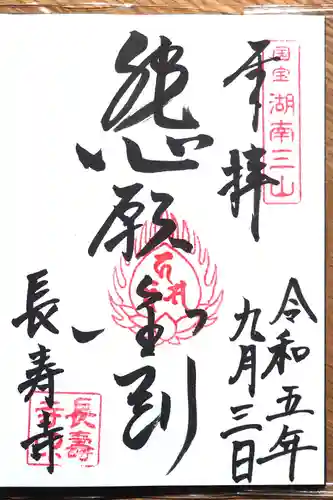 奉拝
国宝湖南三山
令和五年
九月三日
總願金剛
長寿寺
長壽